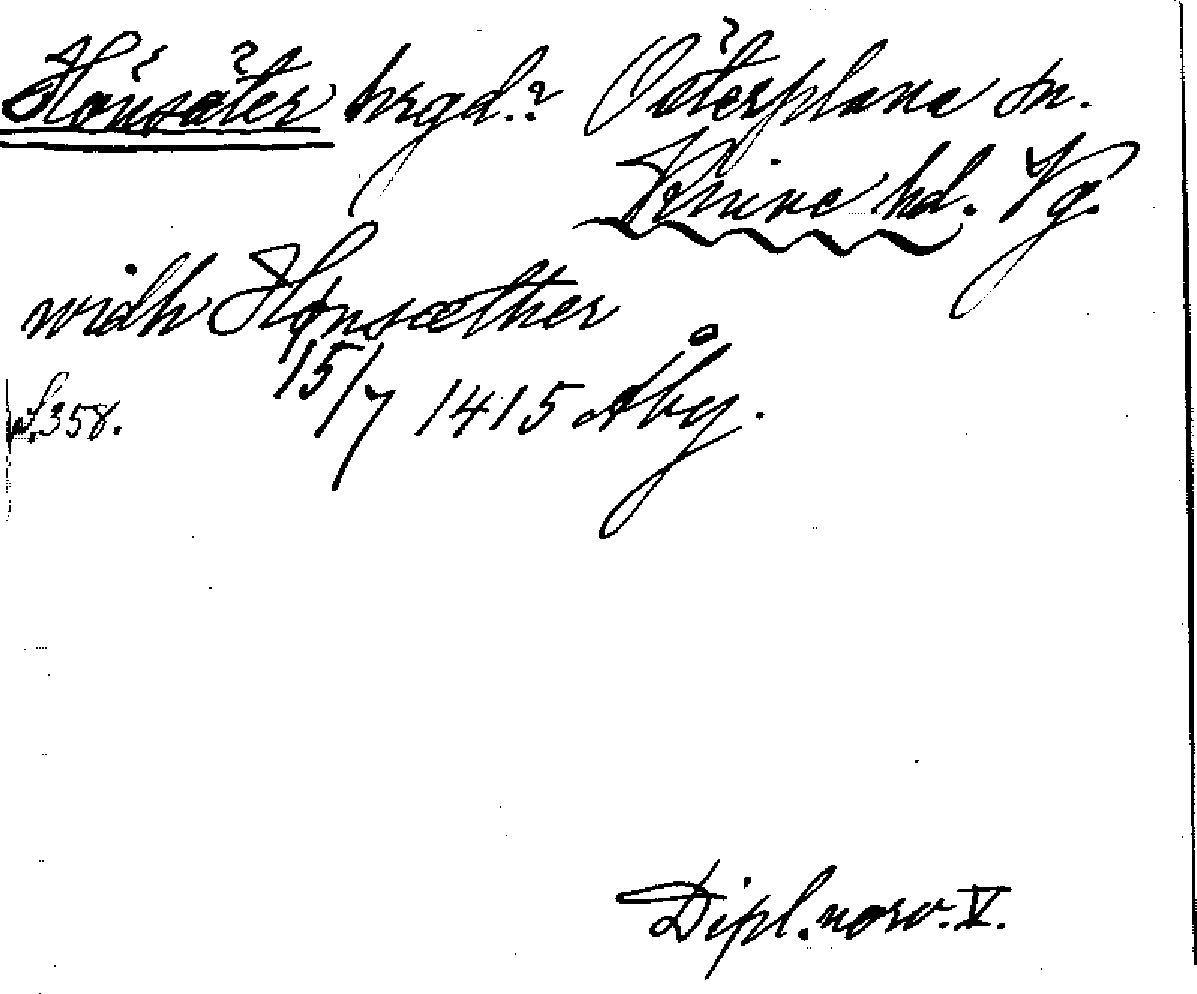 Hönsäter hrgd.? Österplana sn.
Kinne hd. Vg.
widh Hønsæther
15/7 1415 Åby.
s. 358.
Dipl. norv. V.